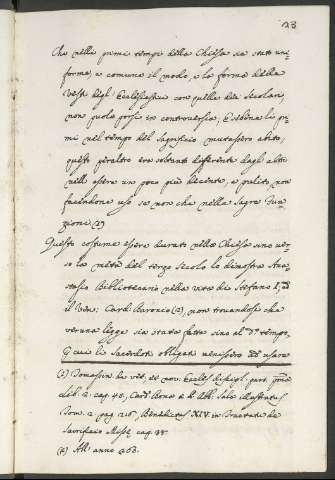 23
Che nelli primi tempi della Chiesa sia stato uni-
forme, e comune il modo, e la forma della
veste degl' Ecclesiastici con quella dei Secolari,
non puole porsi in controversia; E sebbene li pri-
mi nel tempo del Sagrificio mutassero abito,
questo peraltro era soltanto differente dagli altri
nell' essere un poco più decente, e pulito, non
facendone uso se non che nella Sagra Fun-
zione. (1)
Questo costume essere durato nella Chiesa sino ver-
so la metà del terzo Secolo lo dimostra Ana-
stasio Bibliotecario nella vita di Stefano I, ed
il Ven: Card. Baronio (2), non trovandosi che
veruna legge sia stata fatta sino al d.o tempo,
p cui li Sacerdoti obligati venissero ad usare
(1) Tomassin. de vet. et nov. Eccles. discipl. part. prima
lib. 2. cap. 45, Card. Bona
Tom. 2. pag. 216, Benedictus XIV. in Tractatu de
Sacrificio Missæ pag. 38.
(2) All' anno 260.